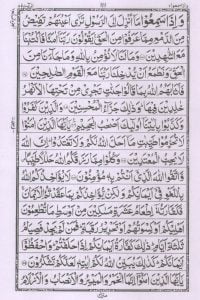 وَاِذَا سَمِعُوْا مَآ اُنْزِلَ اِلَى الرَّسُوْلِ تَرٰٓى اَعْيُنَهُمْ تَفِيْضُ
مِنَ الدَّمْعِ مِمَّا عَرَفُوْا مِنَ الْحَقِّ يَقُوْلُوْنَ رَبَّنَآ اٰمَنَّا فَاكْتُبْنَا
مَعَ الشّٰهِدِيْنَ وَمَا لَنَا لَا نُؤْمِنُ بِاللّٰهِ وَمَا جَآءَنَا مِنَ
الْحَقِّ وَنَطْمَعُ اَنْ يُّدْخِلَنَا رَبُّنَا مَعَ الْقَوْمِ الصّٰلِحِيْنَ
فَاَثَابَهُمُ اللّٰهُ بِمَا قَالُوْا جَنّٰتٍ تَجْرِيْ مِنْ تَحْتِهَا الْاَنْهٰرُ
خٰلِدِيْنَ فِيْهَا وَذٰلِكَ جَزَآءُ الْمُحْسِنِيْنَ وَالَّذِيْنَ كَفَرُوْا
وَكَذَّبُوْا بِاٰيٰتِنَآ اُولٰٓئِكَ اَصْحٰبُ الْجَحِيْمِ يٰٓاَيُّهَا الَّذِيْنَ اٰمَنُوْا
لَا تُحَرِّمُوْا طَيِّبٰتِ مَآ اَحَلَّ اللّٰهُ لَكُمْ وَلَا تَعْتَدُوْا اِنَّ اللّٰهَ
لَا يُحِبُّ الْمُعْتَدِيْنَ وَكُلُوْا مِمَّا رَزَقَكُمُ اللّٰهُ حَلٰلًا طَيِّبًا
وَّاتَّقُوا اللّٰهَ الَّذِيْٓ اَنْتُمْ بِهٖ مُؤْمِنُوْنَ لَا يُؤَاخِذُكُمُ اللّٰهُ
بِاللَّغْوِ فِيْٓ اَيْمَانِكُمْ وَلٰكِنْ يُّؤَاخِذُكُمْ بِمَا عَقَّدْتُّمُ الْاَيْمَانَ
فَكَفَّارَتُهٗٓ اِطْعَامُ عَشَرَةِ مَسٰكِيْنَ مِنْ اَوْسَطِ مَا تُطْعِمُوْنَ
اَهْلِيْكُمْ اَوْ كِسْوَتُهُمْ اَوْ تَحْرِيْرُ رَقَبَةٍ فَمَنْ لَّمْ يَجِدْ فَصِيَامُ
ثَلٰثَةِ اَيَّامٍ ذٰلِكَ كَفَّارَةُ اَيْمَانِكُمْ اِذَا حَلَفْتُمْ وَاحْفَظُوْٓا
اَيْمَانَكُمْ كَذٰلِكَ يُبَيِّنُ اللّٰهُ لَكُمْ اٰيٰتِهٖ لَعَلَّكُمْ تَشْكُرُوْنَ
يٰٓاَيُّهَا الَّذِيْنَ اٰمَنُوْٓا اِنَّمَا الْخَمْرُ وَالْمَيْسِرُ وَالْاَنْصَابُ وَالْاَزْلَامُ